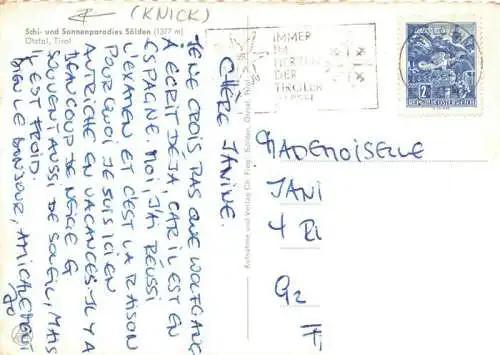 (KNICK)
Schi- und Sonnenparadies Sölden (1377 m)
Ötztal, Tirol
IMMER
IM
HERZEN
DER
TIROLER
2
REPUBLIK ÖSTERREICH
CHÈRE JANINE.
JE NE CROIS PAS QUE WOLFGANG
A ÉCRIT DÉJA, CAR IL EST EN
ESPAGNE. MOI, J'AI RÉUSSI
L'EXAMEN ET C'EST LA RAISON
POURQUOI JE SUIS ICI EN
AUTRICHE EN VACANCES. IL Y A
BEAUCOUP DE NEIGE &
SOUVENT AUSSI DE SOLEIL, MAIS
IL EST FROID.
BIEN LE BONJOUR, AMICALEMENT
JO
Aufnahme und Verlag Ch. Sölden, Ötztal, Tirol
MADEMOISELLE
JANI
4 RI
GZ
F